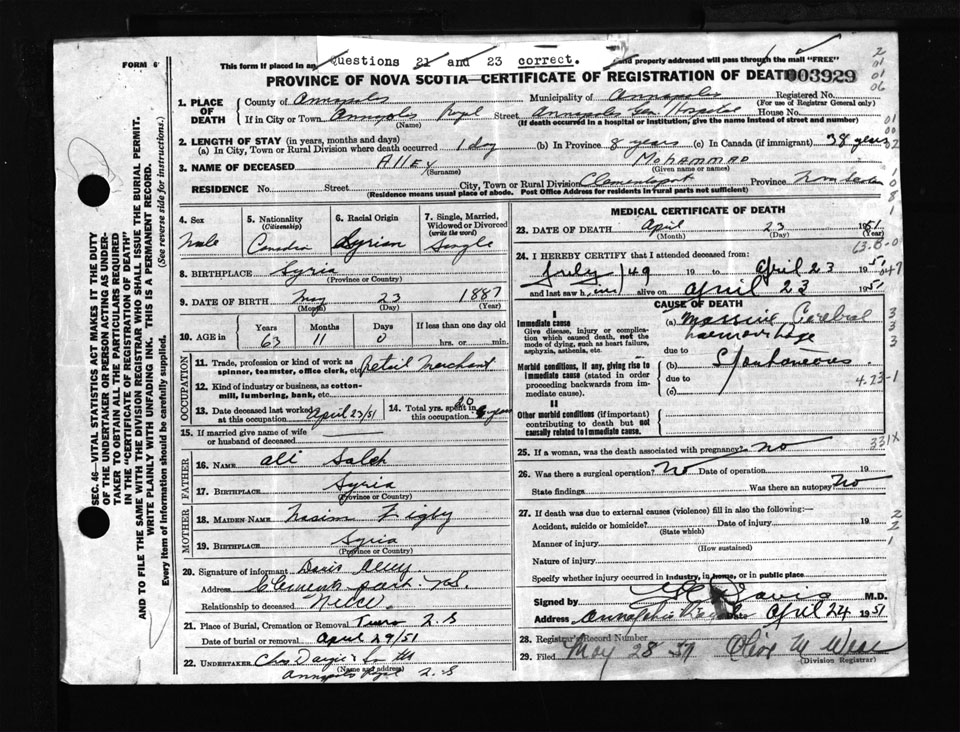 FORM 6
This form if placed in an
Questions 21 and 23 correct.
and properly addressed will pass through the mail "FREE"
PROVINCE OF NOVA SCOTIA—CERTIFICATE OF REGISTRATION OF DEATH
003929
1. PLACE OF DEATH
County of Annapolis Municipality of Annapolis Registered No.
(For use of Registrar General only)
If in City or Town Annapolis Royal Street Annapolis Gen Hospital House No.
(Name) (If death occurred in a hospital or institution, give the name instead of street and number)
2. LENGTH OF STAY (in years, months and days)
(a) In City, Town or Rural Division where death occurred 1 day (b) In Province 8 years (c) In Canada (if immigrant) 38 years
3. NAME OF DECEASED Alley Mohammad
(Surname) (Given name or names)
RESIDENCE No. Street City, Town or Rural Division Clementsport Province Nova Scotia
(Residence means usual place of abode. Post Office Address for residents in rural parts not sufficient)
4. Sex
Male
5. Nationality
(Citizenship)
Canadian
6. Racial Origin
Syrian
7. Single, Married, Widowed or Divorced
(write the word)
Single
8. BIRTHPLACE Syria
(Province or Country)
9. DATE OF BIRTH May 23 1887
(Month) (Day) (Year)
10. AGE in Years Months Days If less than one day old
63 11 0 hrs. or min.
OCCUPATION
11. Trade, profession or kind of work as
spinner, teamster, office clerk, etc. Retail Merchant
12. Kind of industry or business, as cotton-
mill, lumbering, bank, etc.
13. Date deceased last worked
at this occupation April 23/51
14. Total yrs. spent in
this occupation years
15. If married give name of wife
or husband of deceased
FATHER
16. NAME Ali Saleh
17. BIRTHPLACE Syria
(Province or Country)
MOTHER
18. MAIDEN NAME Nasim
19. BIRTHPLACE Syria
(Province or Country)
20. Signature of informant Doris Alley
Address Clementsport N.S.
Relationship to deceased Niece
21. Place of Burial, Cremation or Removal Truro N.S
Date of burial or removal April 29/51
22. UNDERTAKER Chas Dargie & Smith
(Name and address)
Annapolis Royal N.S
MEDICAL CERTIFICATE OF DEATH
23. DATE OF DEATH April 23 1951
(Month) (Day) (Year)
24. I HEREBY CERTIFY that I attended deceased from:
July /49 19 to April 23 1951
and last saw him alive on April 23 1951
CAUSE OF DEATH
I
Immediate cause
Give disease, injury or complica-
tion which caused death, not the
mode of dying, such as heart failure,
asphyxia, asthenia, etc.
(a) Massive Cerebral
haemorrhage
due to
Morbid conditions, if any, giving rise to
immediate cause (stated in order
proceeding backwards from im-
mediate cause).
(b) Spontaneous
due to
(c)
II
Other morbid conditions (if important)
contributing to death but not
causally related to immediate cause.
25. If a woman, was the death associated with pregnancy? No
26. Was there a surgical operation? No Date of operation 19
State findings Was there an autopsy? No
27. If death was due to external causes (violence) fill in also the following:—
Accident, suicide or homicide? Date of injury 19
(State which)
Manner of injury
(How sustained)
Nature of injury
Specify whether injury occurred in industry, in home, or in public place
Signed by Davis M.D.
Address Annapolis Royal Date April 24 1951
28. Registrar's Record Number
29. Filed May 28 51
(Division Registrar)
SEC. 46—VITAL STATISTICS ACT MAKES IT THE DUTY
OF THE UNDERTAKER OR PERSON ACTING AS UNDER-
TAKER TO OBTAIN ALL THE PARTICULARS REQUIRED
IN THE "CERTIFICATE OF REGISTRATION OF DEATH"
AND TO FILE THE SAME WITH THE DIVISION REGISTRAR WHO SHALL ISSUE THE BURIAL PERMIT.
WRITE PLAINLY WITH UNFADING INK. THIS IS A PERMANENT RECORD.
Every item of information should be carefully supplied. (See reverse side for instructions.)